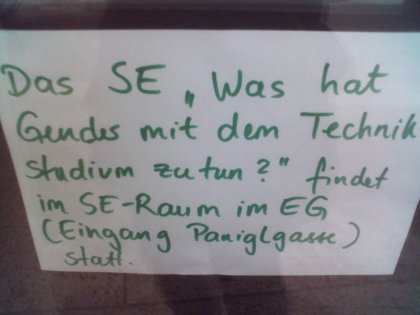 Das SE „Was hat
Gendes mit dem Technik
studium zu tun?" findet
im SE-Raum im EG
(Eingang Paniglgasse)
statt.